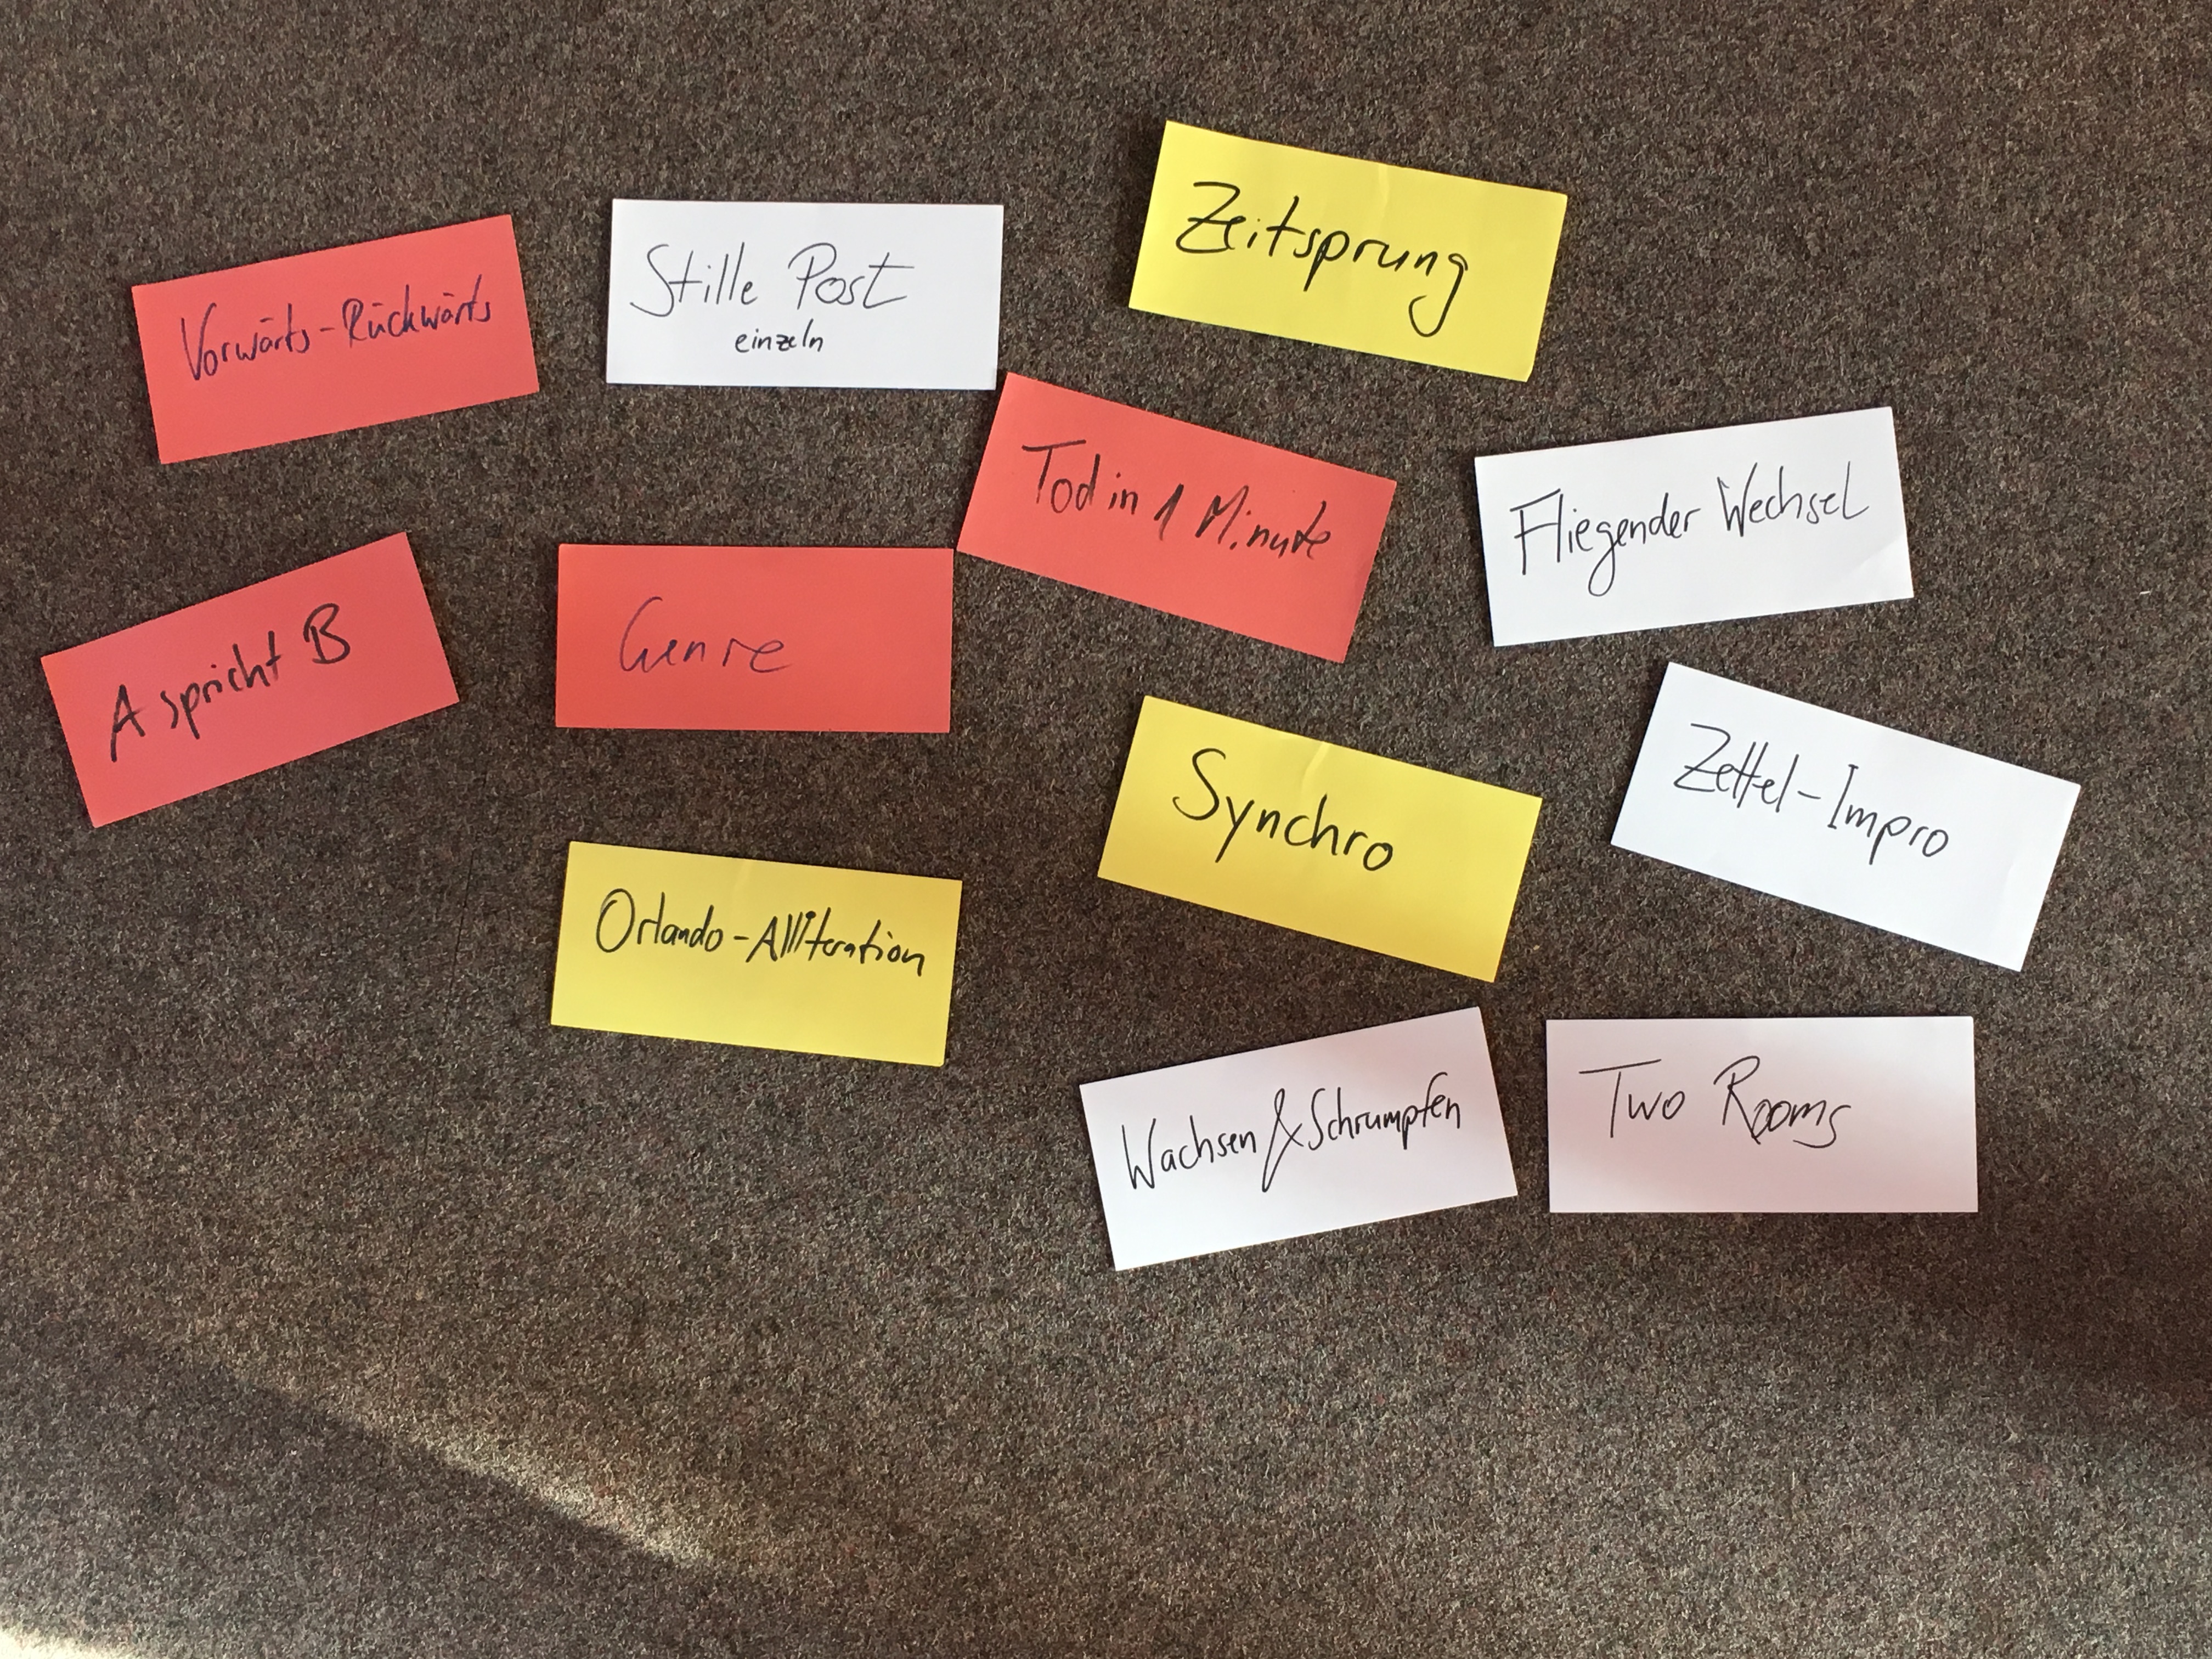 Vorwärts-Rückwärts
Stille Post
einzeln
Zeitsprung
Tod in 1 Minute
Fliegender Wechsel
A spricht B
Genre
Synchro
Zettel-Impro
Orlando-Alliteration
Wachsen & Schrumpfen
Two Rooms